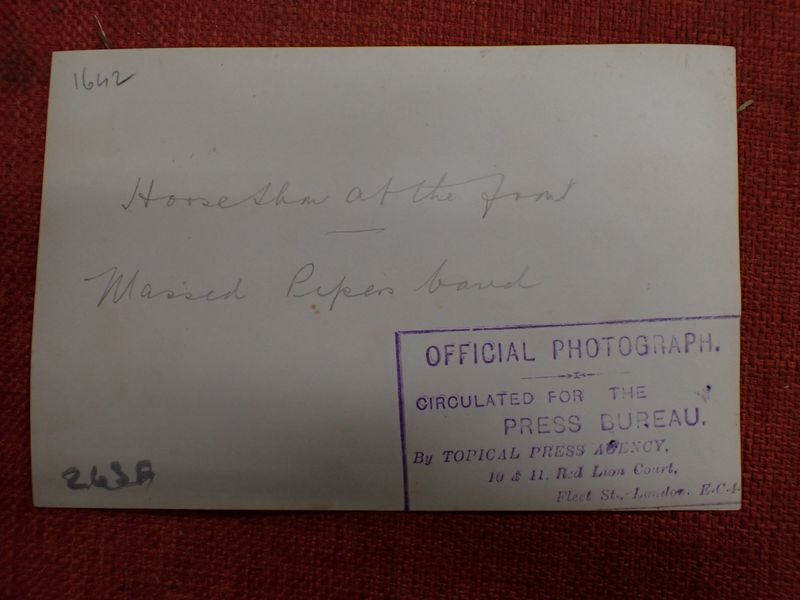 1642
Horse Show at the front
Massed Pipers band
OFFICIAL PHOTOGRAPH.
CIRCULATED FOR THE
PRESS BUREAU.
By TOPICAL PRESS AGENCY,
10 & 11, Red Lion Court,
Fleet St., London, E.C.4